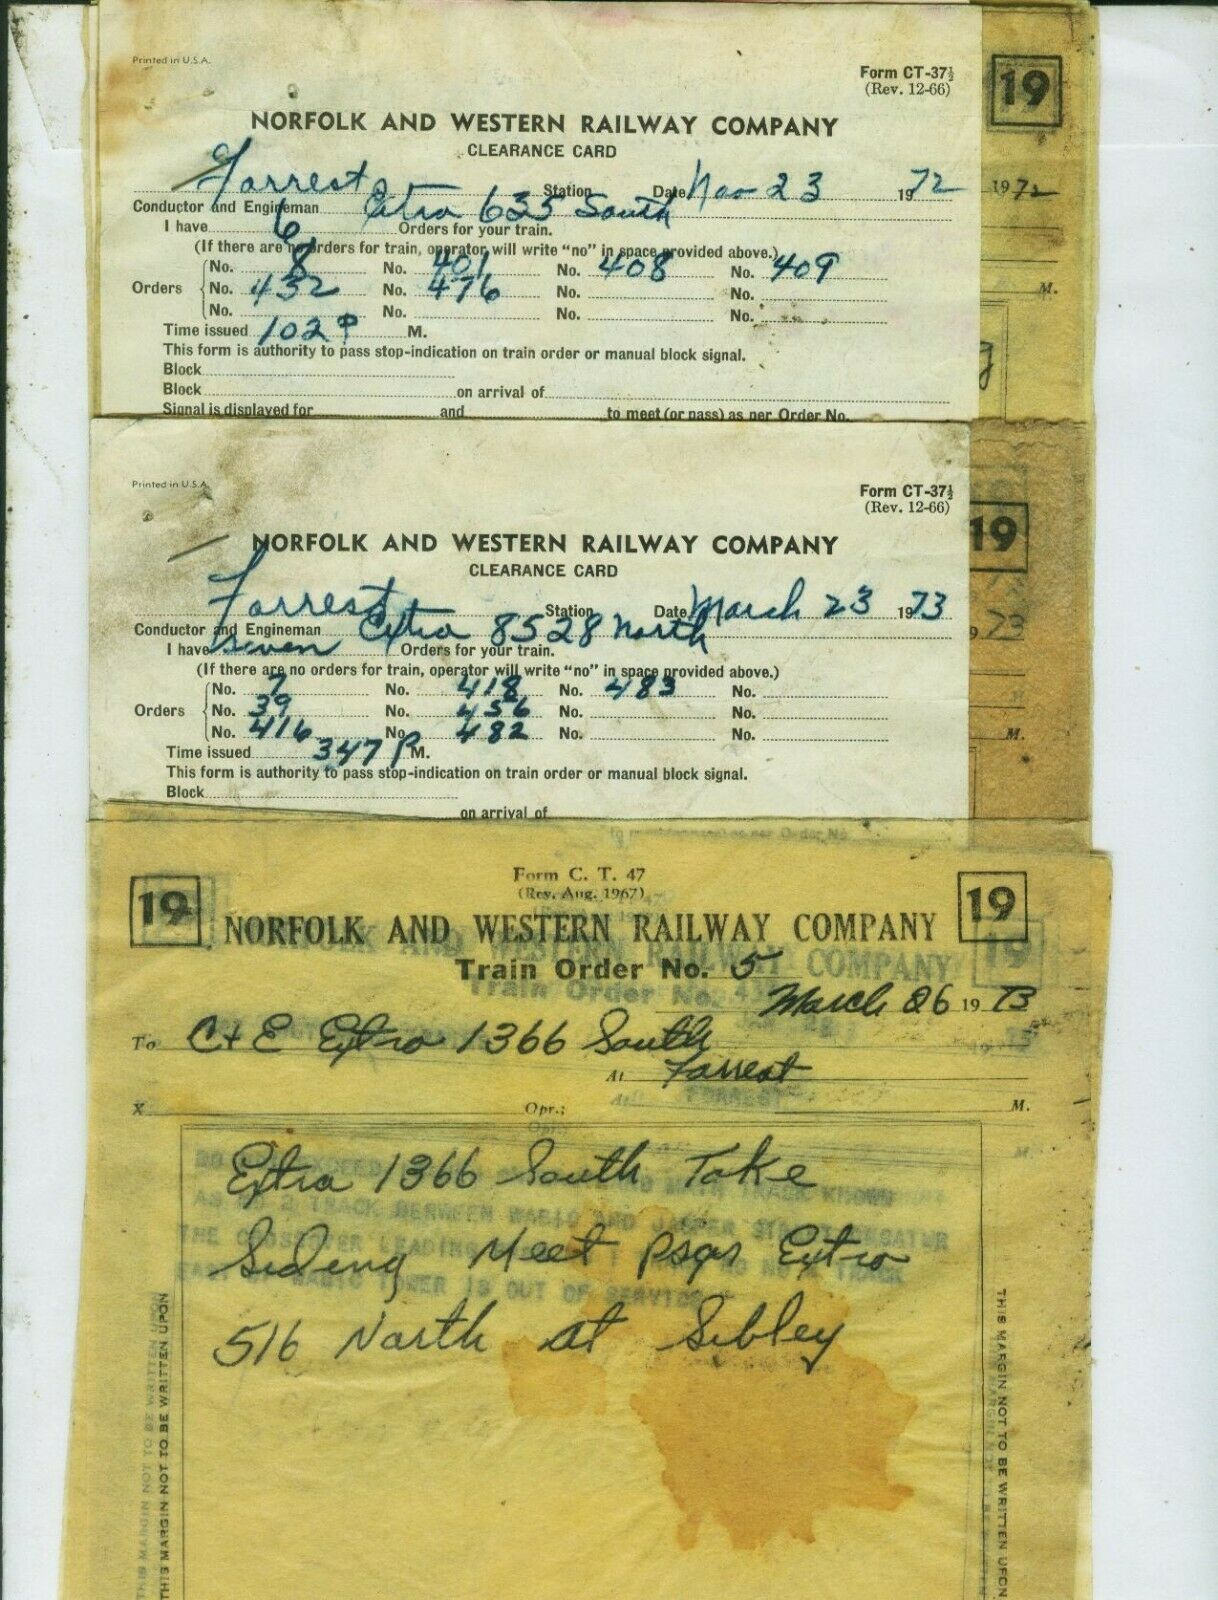 Printed in U.S.A.
Form CT-37½
(Rev. 12-66)
19
NORFOLK AND WESTERN RAILWAY COMPANY
CLEARANCE CARD
Forrest Station Date Nov 23 1972
1972
Conductor and Engineman Extra 635 South
I have 6 Orders for your train.
(If there are no orders for train, operator will write "no" in space provided above.)
No. 8 No. 401 No. 408 No. 409
Orders No. 432 No. 476 No. No.
M.
No. No. No. No.
Time issued 102 P M.
This form is authority to pass stop-indication on train order or manual block signal.
Block
Block on arrival of
Signal is displayed for and to meet (or pass) as per Order No.
Printed in U.S.A.
Form CT-37½
(Rev. 12-66)
19
NORFOLK AND WESTERN RAILWAY COMPANY
CLEARANCE CARD
Forrest Station Date March 23 1973
73
Conductor and Engineman Extra 8528 North
I have seven Orders for your train.
(If there are no orders for train, operator will write "no" in space provided above.)
No. 7 No. 418 No. 483 No.
Orders No. 39 No. 456 No. No.
No. 416 No. 482 No. No.
M.
Time issued 347 P M.
This form is authority to pass stop-indication on train order or manual block signal.
Block
on arrival of
Form C. T. 47
(Rev. Aug. 1967)
19 19
NORFOLK AND WESTERN RAILWAY COMPANY
Train Order No. 5
March 26 1973
To C+E Extra 1366 South
At Forrest
X Opr.; M.
Extra 1366 South Take
Siding Meet Psgr Extra
516 North at Sibley
THIS MARGIN NOT TO BE WRITTEN UPON
THIS MARGIN NOT TO BE WRITTEN UPON